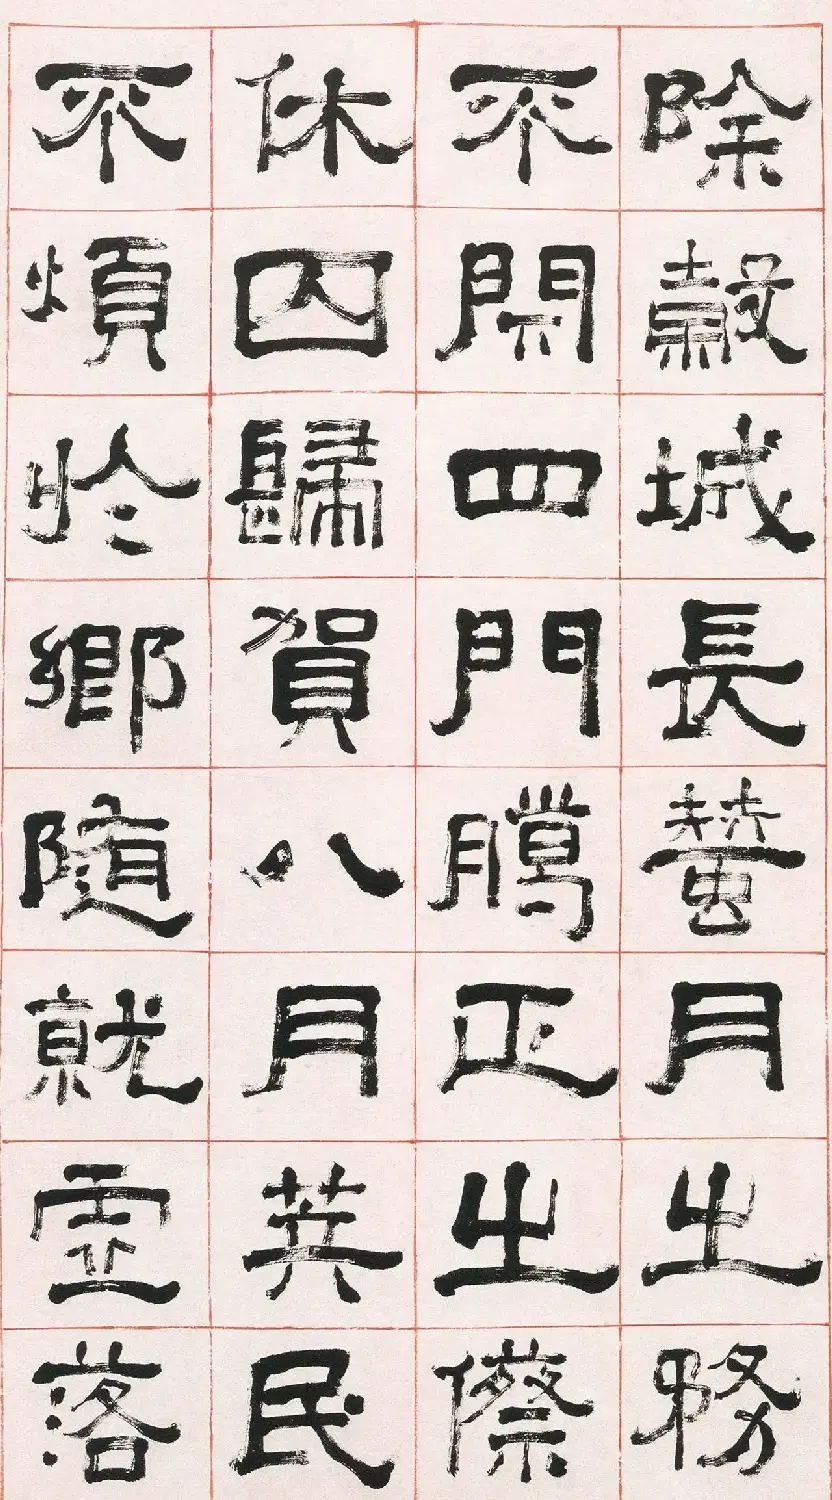 除穀城長蠶月之務
不閉四門臘正之傺
休囚歸賀八月筭民
不煩於鄉隨就虛落